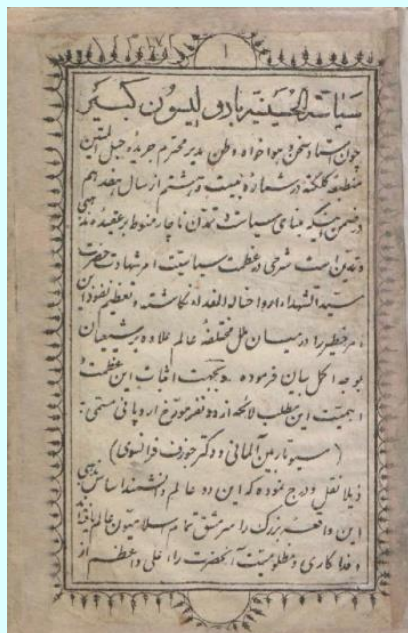 ۱
سیاسة الحسینیه یا رولیسیون کبیر
چون استاد سخن و هواخواه وطن مدیر محترم جریده حبل المتین
منطبعه کلکته در شماره بیست و هشتم از سال هفدهم
در ضمن اینکه مبنای سیاست و تمدن ناچار منوط بر عقیده مذهبی
و تدین است شرحی در عظمت سیاسیت امر شهادت حضرت
سید الشهداء ارواحنا له الفداء نگاشته و تعظیم نفوذ این
امر خطیر را در میان ملل مختلفه عالم علاوه بر شیعیان
بوجه اکمل بیان فرموده و بجهت اثبات این عظمت و
اهمیت این مطلب لایحه از دو نفر مورخ اروپائی مسمی به
(مسیو ماربین آلمانی و دکتر جوزف فرانسوی)
ذیلا نقل و درج نموده که این دو عالم دانشمند اساس مذهبی
این واقعه بزرگ را سرمشق تمام اسلامیون عالم
و فداکاری و مظلومیت آنحضرت را اعلی و اعظم از